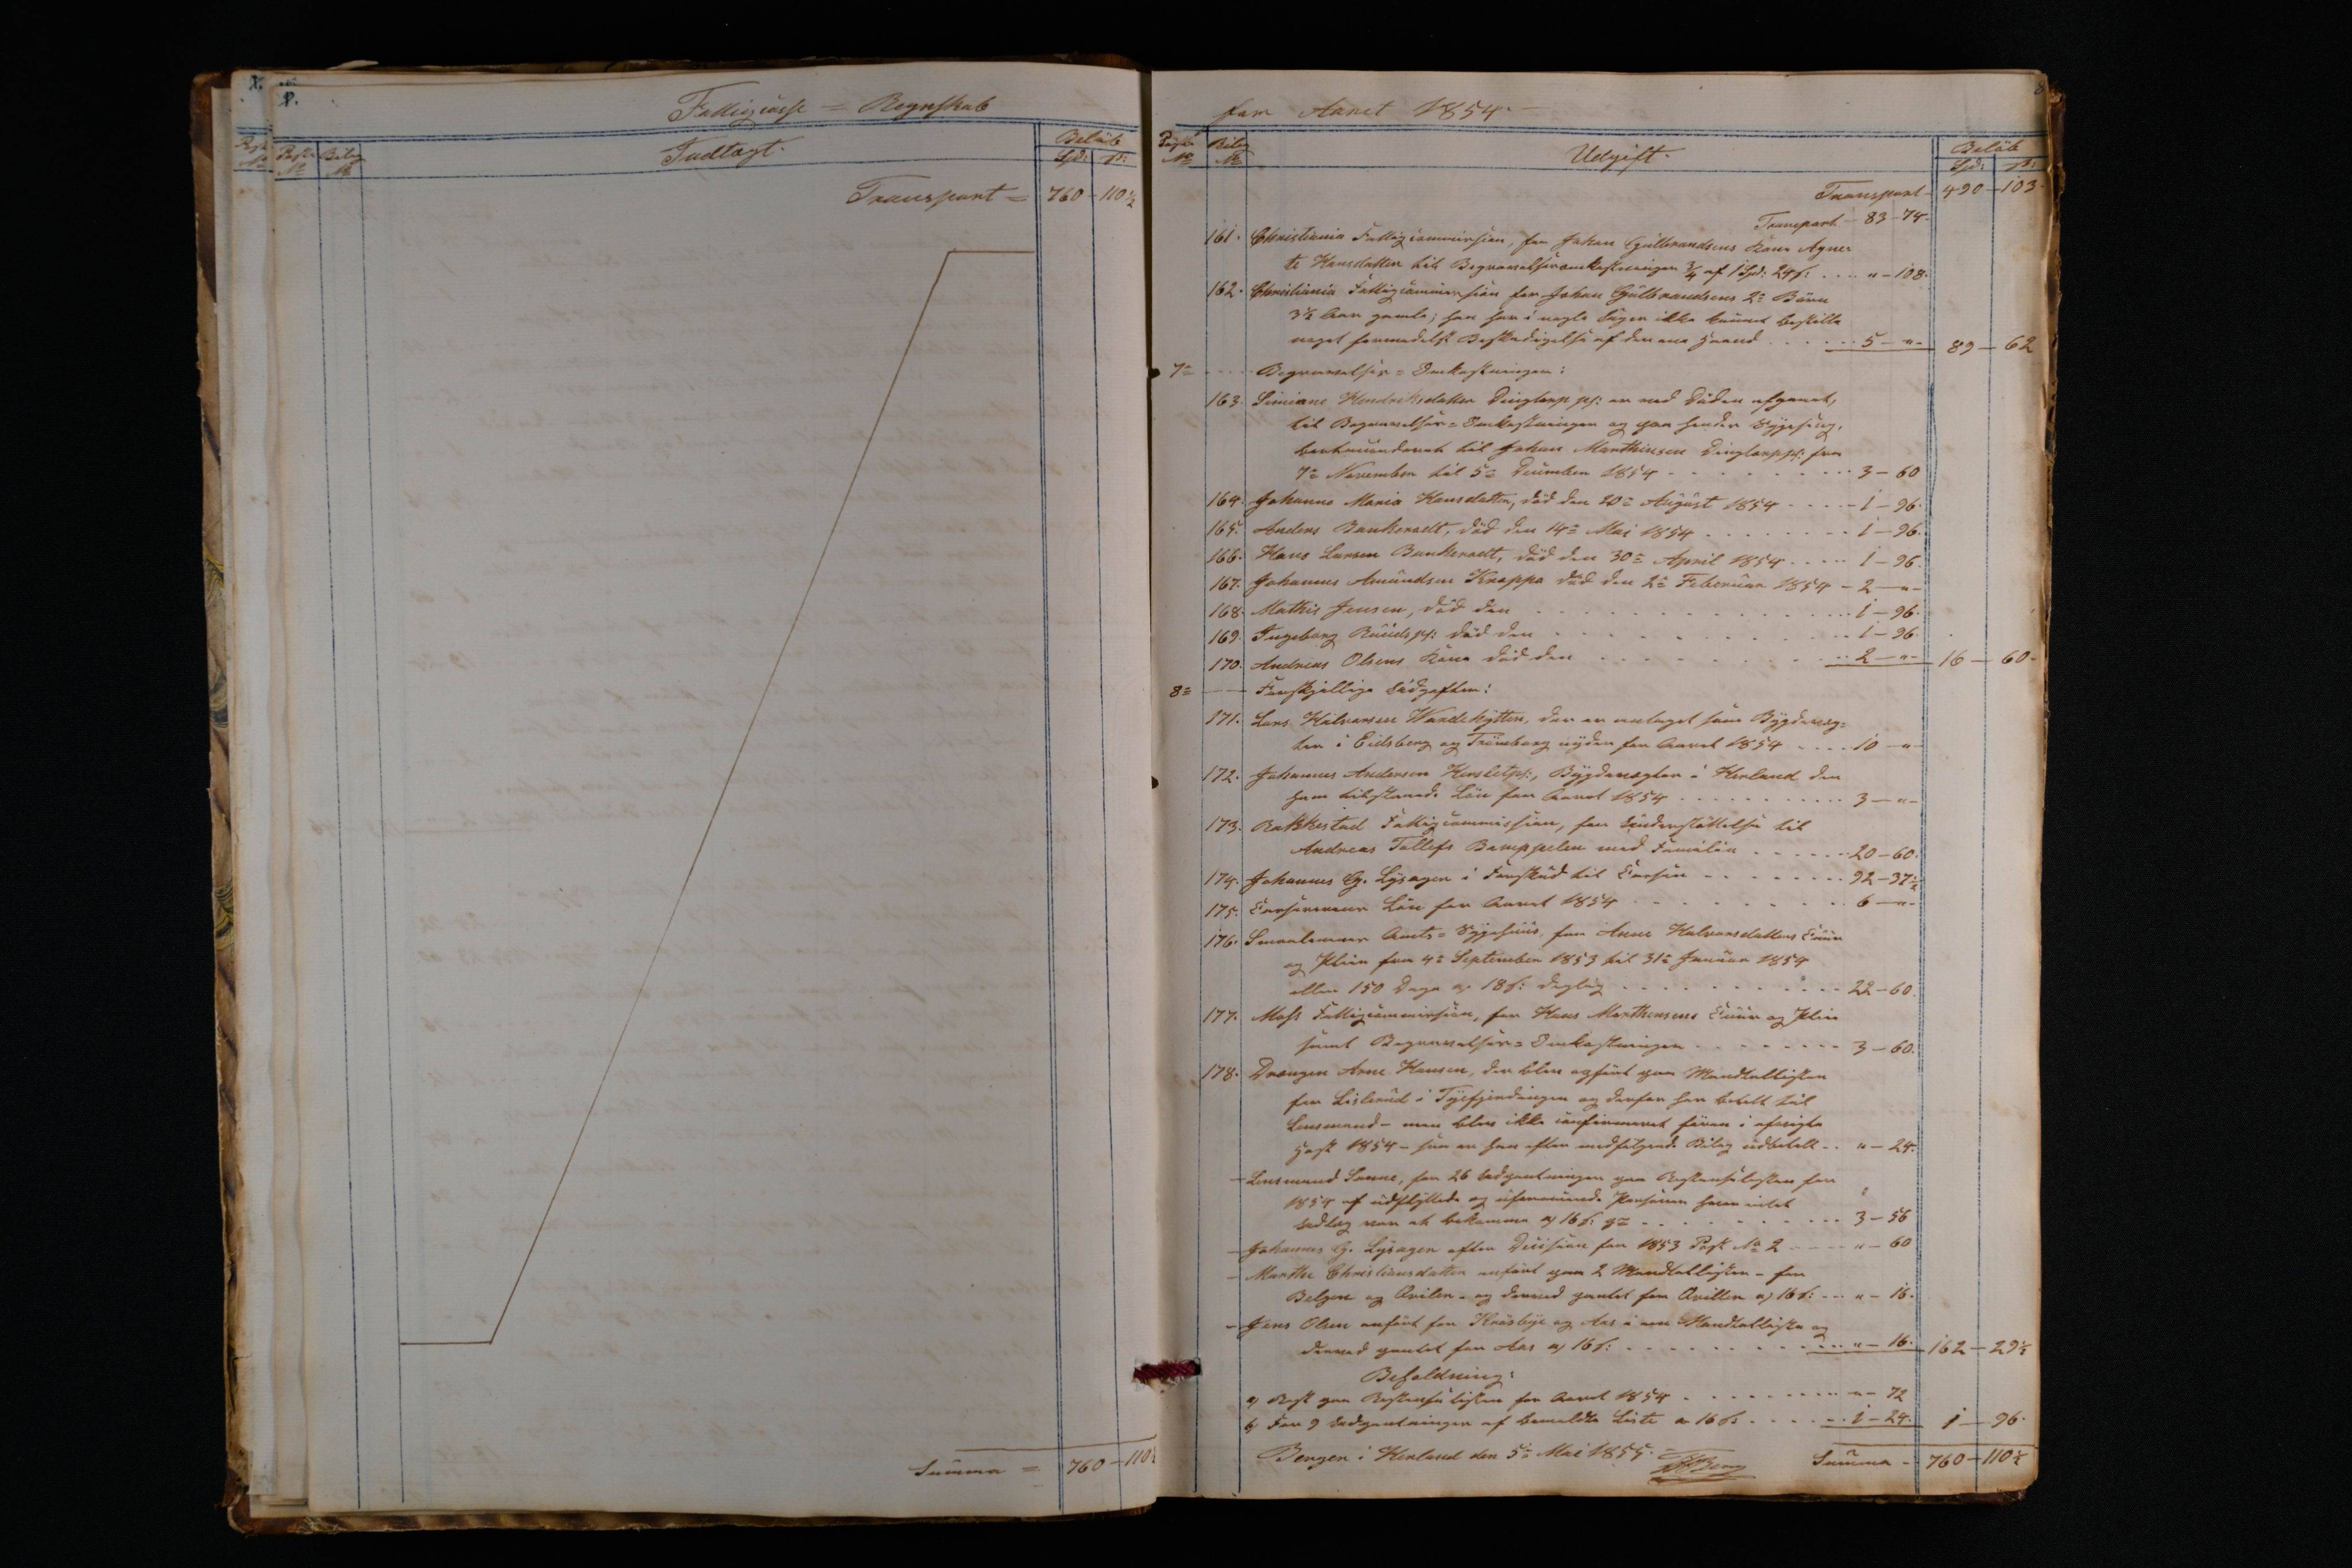 8.
Fattigcasse = Regnskab
Post No
Bilag No
Indtægt.
Beløb
Spd: ß:
Transport = 760 - 110½
Summa = 760 - 110½
8
for Aaret 1854.
Post No
Bilag No
Udgift.
Beløb
Spd: ß:
Transport - 490 - 103.
Transport - 83 - 74.
161. Christiania Fattigcommission, for Johan Gulbrandsens Kone Agne-
te Hansdatter til Begravelsesomkostninger ¾ af 1 Spd: 24 ß: .... " - 108.
162. Christiania Fattigcommission for Johan Gulbrandsens 2de Børn
3½ Aar gamle; han har i nogle Uger ikke kunnet bestille
noget formedelst Beskadigelse af den ene Haand ..... 5 - " - 89 - 62
7de ---- Begravelses = Omkostninger:
163. Simiane Hendriksdatter Dingtorp pl: er ved Døden afgaaet,
til Begravelses = Omkostninger og paa hendes Sygeseng,
7de November til 5te December 1854 ...... 3 - 60
164. Johanne Maria Hansdatter, død den 20de August 1854 .... 1 - 96.
165. Anders Bankerudt, død den 14de Mai 1854 ....... 1 - 96.
166. Hans Larsen Bankerudt, død den 30te April 1854 .... 1 - 96.
167. Johannes Amundsen Krappa død den 2den Februar 1854 - 2 - " -
168. Mathis Jensen, død den ........... 1 - 96.
169. Ingeborg Ruudspl: død den ........ 1 - 96.
170. Andreas Olsens Kone død den ........ 2 - " - 16 - 60.
8de ---- Forskjellige Udgifter:
171. Lars Halvorsen Wandehytten, der er antaget som Bygdevæg=
ter i Eidsberg og Trømborg nyder for Aaret 1854 .... 10 - "
172. Johannes Andersen Hersletpl:, Bygdevægter i Herland den
ham tilstaaede Løn for Aaret 1854 ......... 3 - " -
173. Rakkestad Fattigcommission, for Understøttelse til
Andreas Tollefs med Familie ...... 20 - 60.
174. Johannes G. Lysager i Forskud til Cassen ........ 92 - 37½
175. Cassererens Løn for Aaret 1854 ........ 6 - " -
176. Smaalenenes Amts = Sygehuus, for Anne Halvorsdatters Cuur
og Pleie fra 4de September 1853 til 31te Januar 1854
eller 150 Dage a) 18 ß: daglig ......... 22 - 60.
177. Moss Fattigcommission, for Hans Marthinsens Cuur og Pleie
samt Begravelses = Omkostninger ........ 3 - 60.
178. Drengen Arne Hansen, der blev opført paa Mandtallisten
for Lislerud i Tysfjerdingen og derfor har betalt til
Lensmand - men blev ikke confirmeret førend i afvigte
Høst 1854 - saa er ham efter medfølgende Bilag udbetalt .. " - 24.
- Lensmand Sanne, for 26 Udpantninger paa Restanselisten for
1854 af udflyttede og uformuende Personer hvor intet
Udlæg var at bekomme a) 16 ß: ........ 3 - 56
- Johannes G. Lysager efter Decision for 1853 Post No 2 .... " - 60
- Marthe Christiansdatter anført paa 2 Mandtallister - for
Belgen og Qvilen - og derved pantet for Qvillen a) 16 ß: ... " - 16.
- Jens Olsen anført for Kræsbye og Aas i een Mandtalliste og
derved pantet for Aas a) 16 ß: ......... " - 16. 162 - 29½
Beholdning:
a) Rest paa Restanselisten for Aaret 1854 ........ " - 72
b) For 9 Udpantninger af bemeldte Liste a 16 ß: ...... 1 - 24. 1 - 96.
Bergen i Herland den 5te Mai 1855. Berg
Summa - 760 - 110½